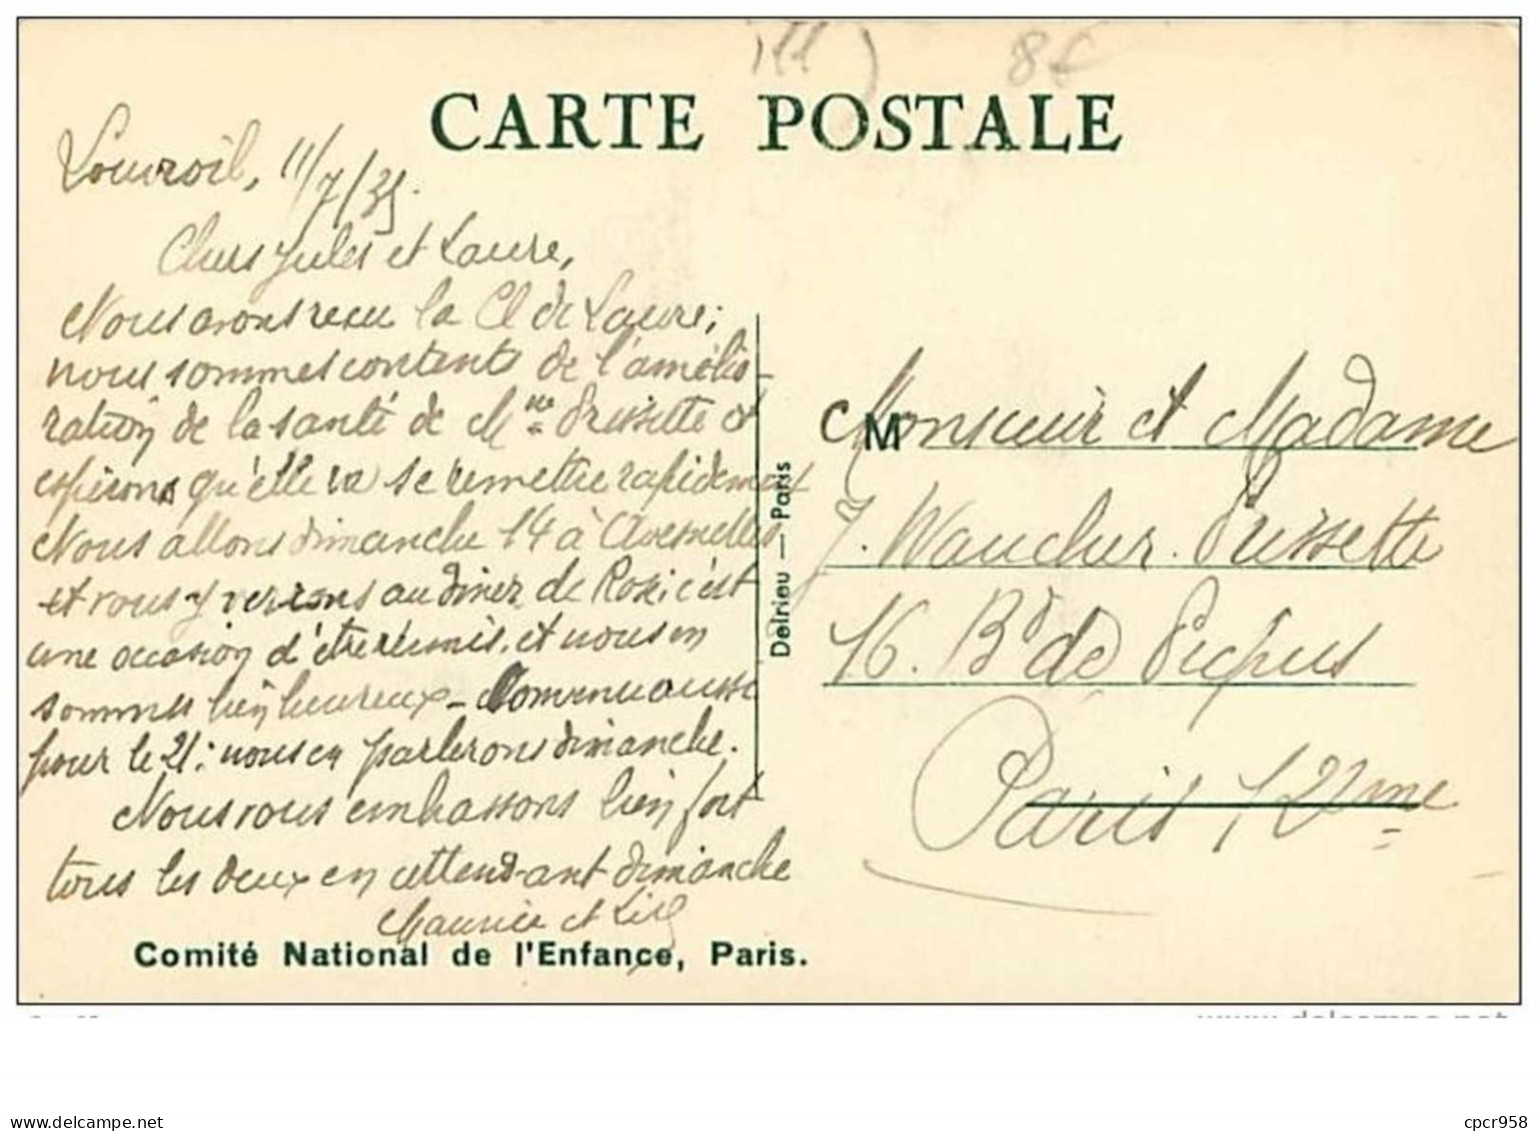 8€
CARTE POSTALE
Louvroil, 11/7/35.
Chers Jules et Laure,
Nous avons recu la Cl de Laure;
nous sommes contents de l'amélio-
ration de la santé de Mme Prissette et
espérons qu'elle va se remettre rapidement
Nous allons dimanche 14 à Avesnelles
et vous y verrons au diner de Rosi c'est
une occasion d'être réunis, et nous en
sommes bien heureux - Convenu aussi
pour le 21: nous en parlerons dimanche.
Nous vous embrassons bien fort
tous les deux en attendant dimanche
Maurice et
Comité National de l'Enfance, Paris.
Delrieu — Paris
M
Monsieur et Madame
J. Waucher. Prissette
16. Bd de Picpus
Paris, 12ème
cpcr958